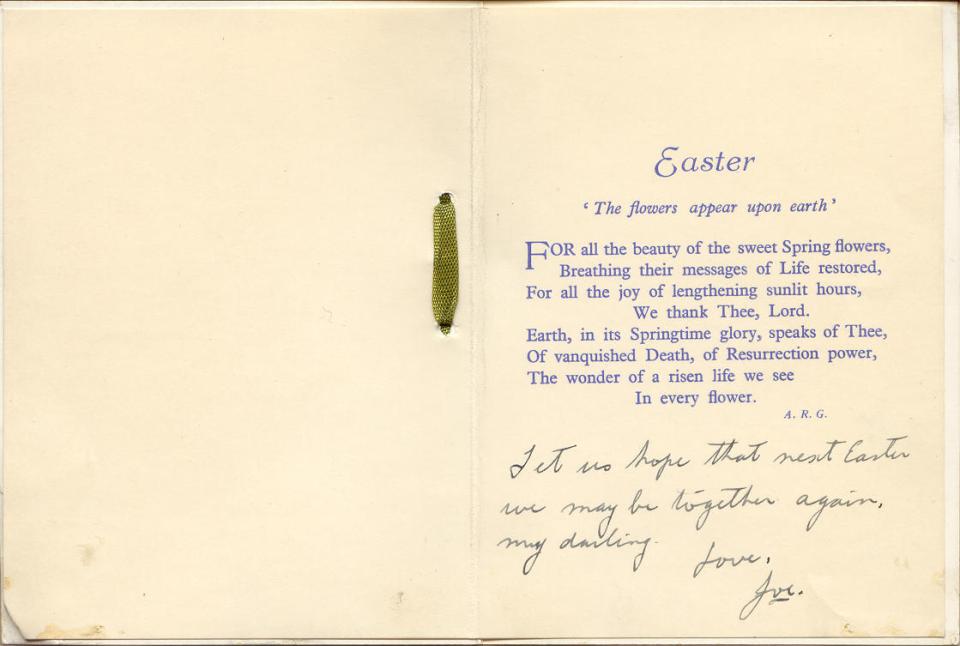 Easter
‘ The flowers appear upon earth ’
FOR all the beauty of the sweet Spring flowers,
Breathing their messages of Life restored,
For all the joy of lengthening sunlit hours,
We thank Thee, Lord.
Earth, in its Springtime glory, speaks of Thee,
Of vanquished Death, of Resurrection power,
The wonder of a risen life we see
In every flower.
A. R. G.
Let us hope that next Easter
we may be together again,
my darling.
Love,
Joe.